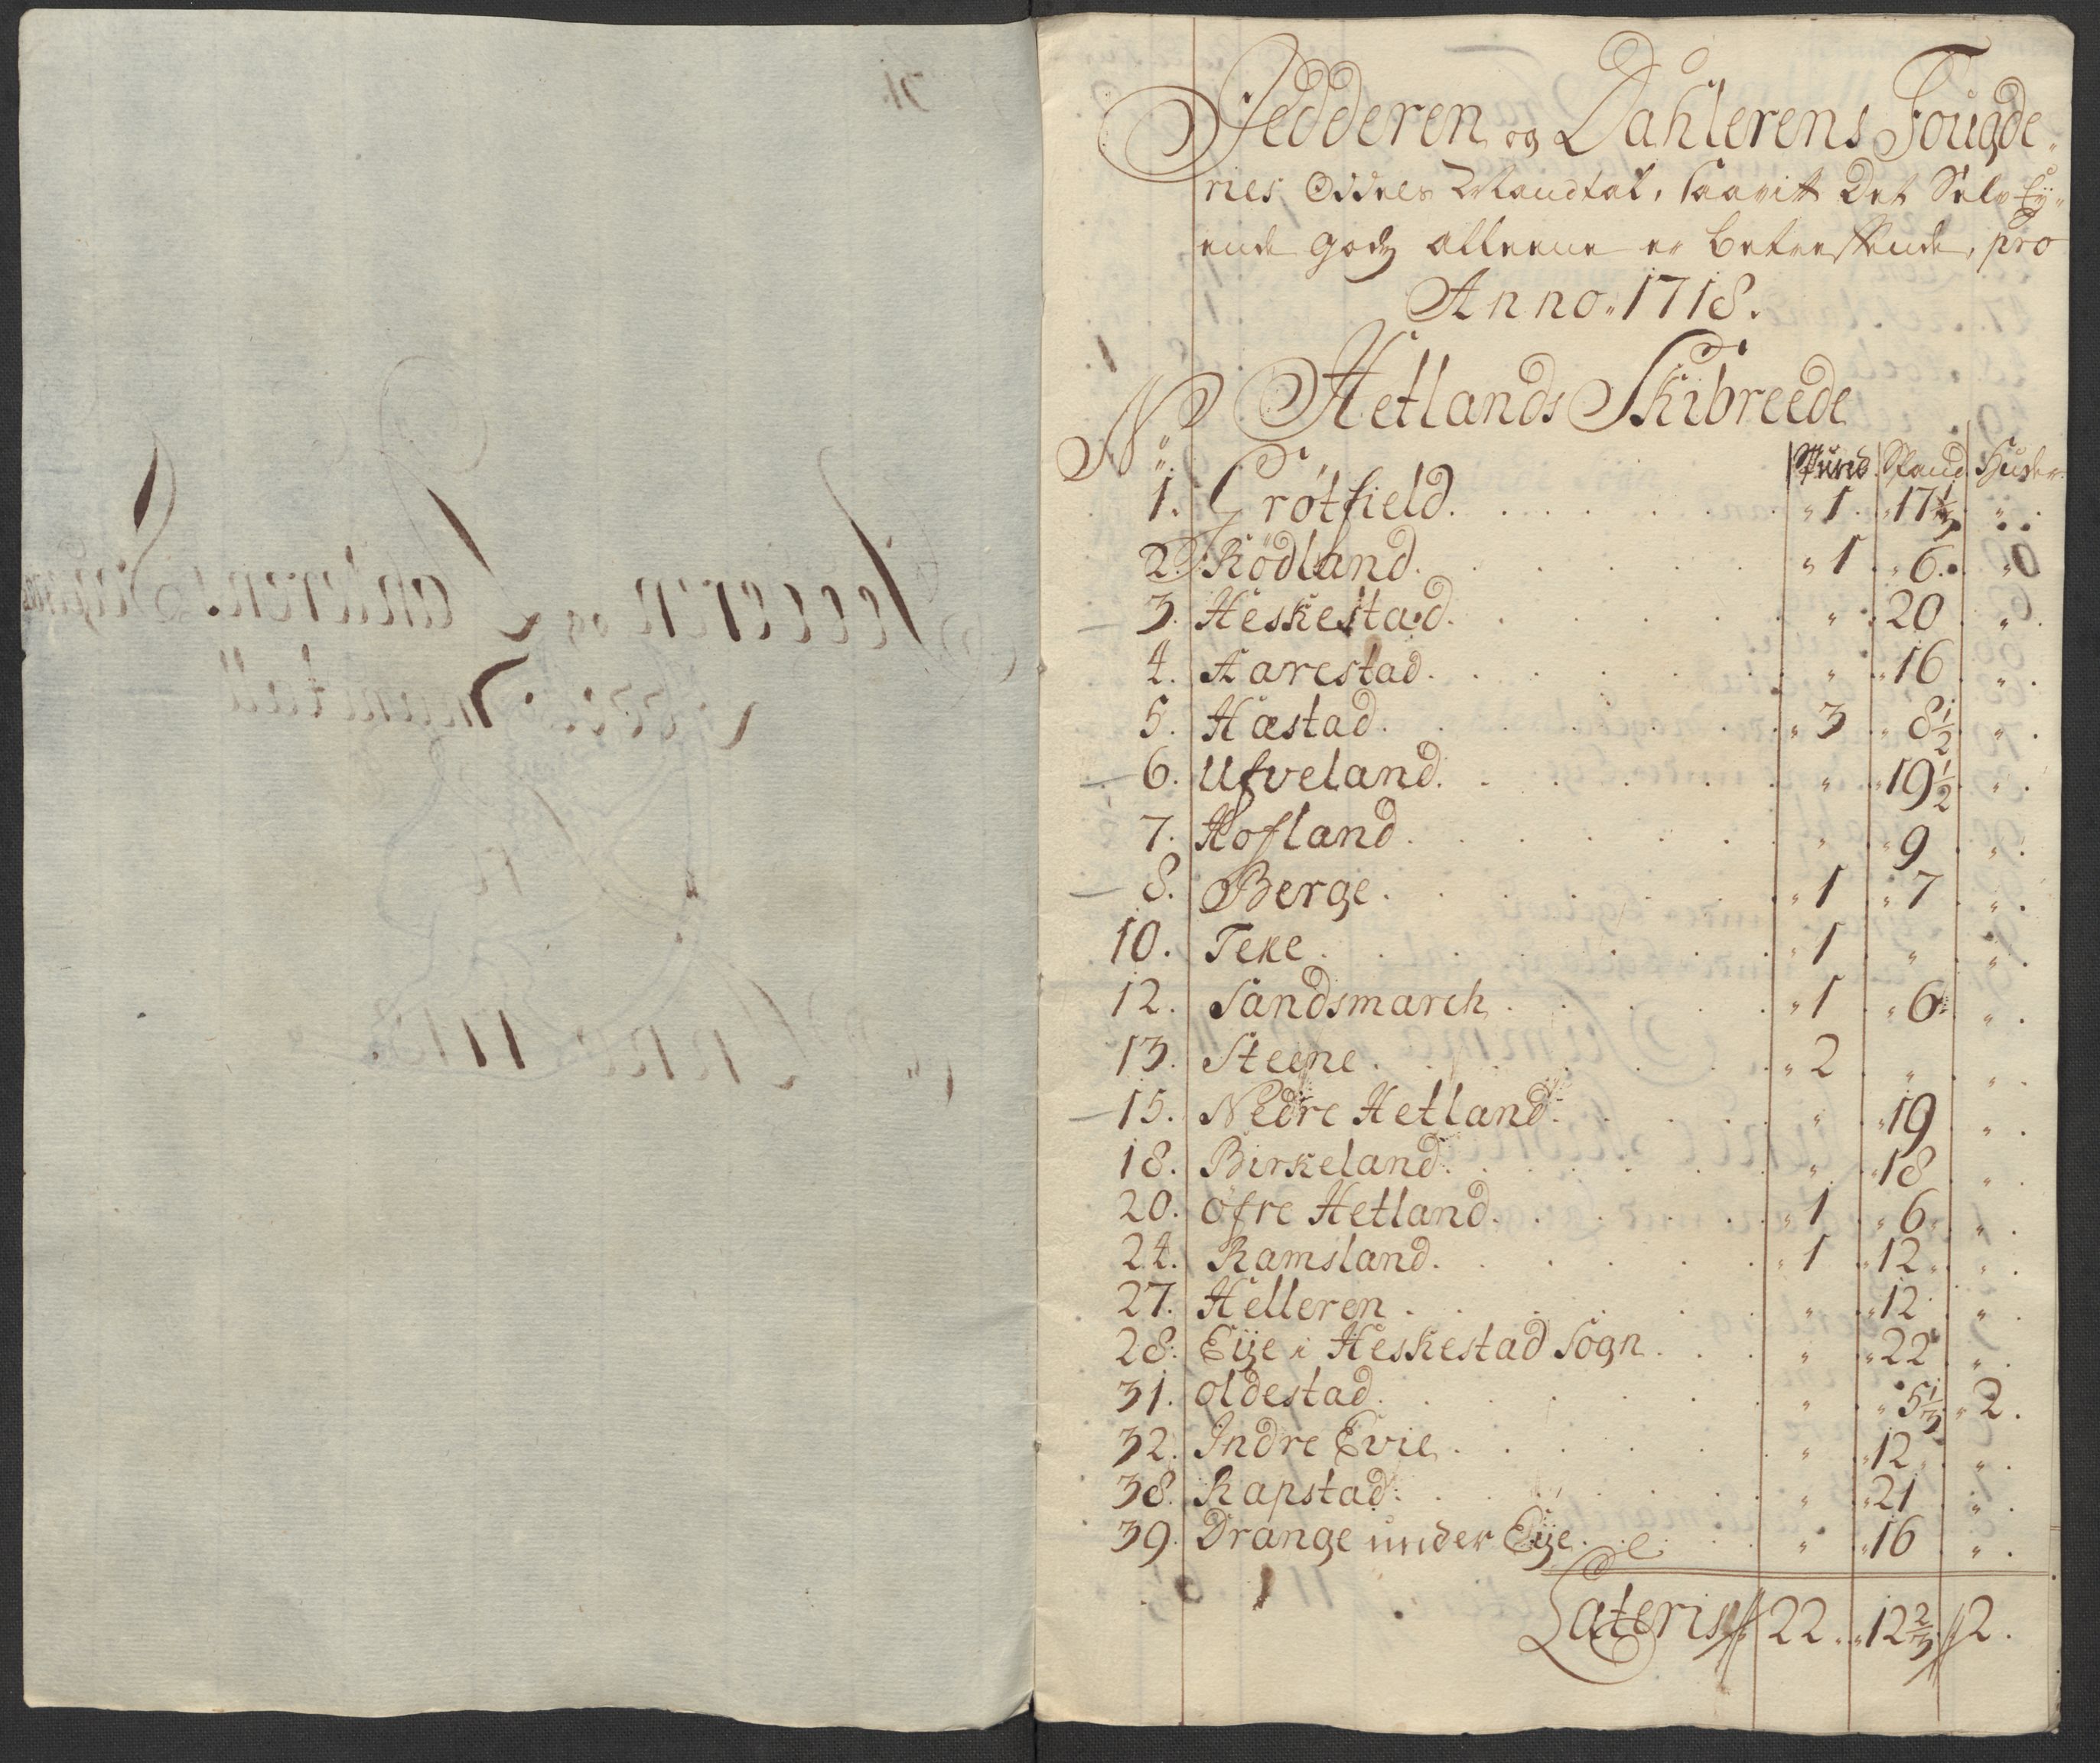 Jedderen og Dahlerens Fougde-
ries Oddels Mandtal, saavit Det Selv Ey-
ende godz alleene er betreffende, pro
Anno. 1718.
Hetlands Skibreede
No. Pund Spand Huder
1. Grøtfield. " 1. " 17 1/3 "
2. Rödland. " 1. " 6. "
3. Heskestad. " 20 "
4. Aarestad. " 16 "
5. Hæstad. " 3 " 8 1/2 "
6. Ufveland. " 19 1/2 "
7. Hofland. " 9 "
8. Berge. " 1 " 7 "
10. Teke. " 1 " "
12. Sandsmarch. " 1 " 6 "
13. Steene. " 2 " "
15. Nedre Hetland. " 19 "
18. Birkeland. " 18 "
20. Øfre Hetland. " 1 " 6 "
24. Ramsland. " 1 " 12 "
27. Helleren. " 12 "
28. Eije i Heskestad Sogn. " 22 "
31. Oldestad. " 5 1/3 " 2.
32. Indre Evie. " 12 "
38. Rapstad. " 21 "
39. Drange under Eije. " 16 "
Lateris 22. 12 2/3 2.